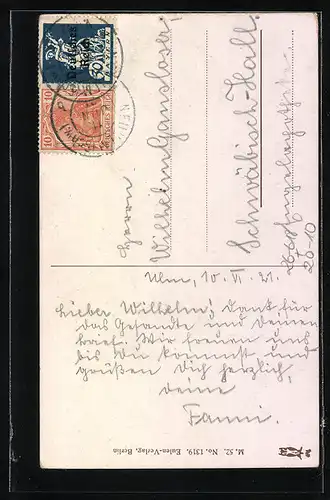 Deutsches Reich
10
10
Herrn
Wilhelm Gansloser
Schwäbisch-Hall.
Ulm, 10. VI. 21.
Lieber Wilhelm! Dank für
das Gesandte und Deinen
Brief. Wir freuen uns
bis Du kommst und
grüßen Dich herzlich,
Deine
Fanni.
M. 52. No. 1319. Eulen-Verlag, Berlin